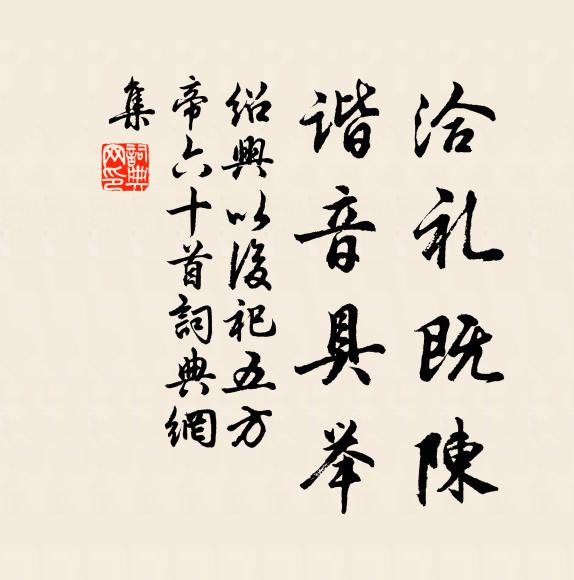 洽礼既陳
谐音具举
绍興以後祀五方
帝六十首詞典網
集
詞典
网印